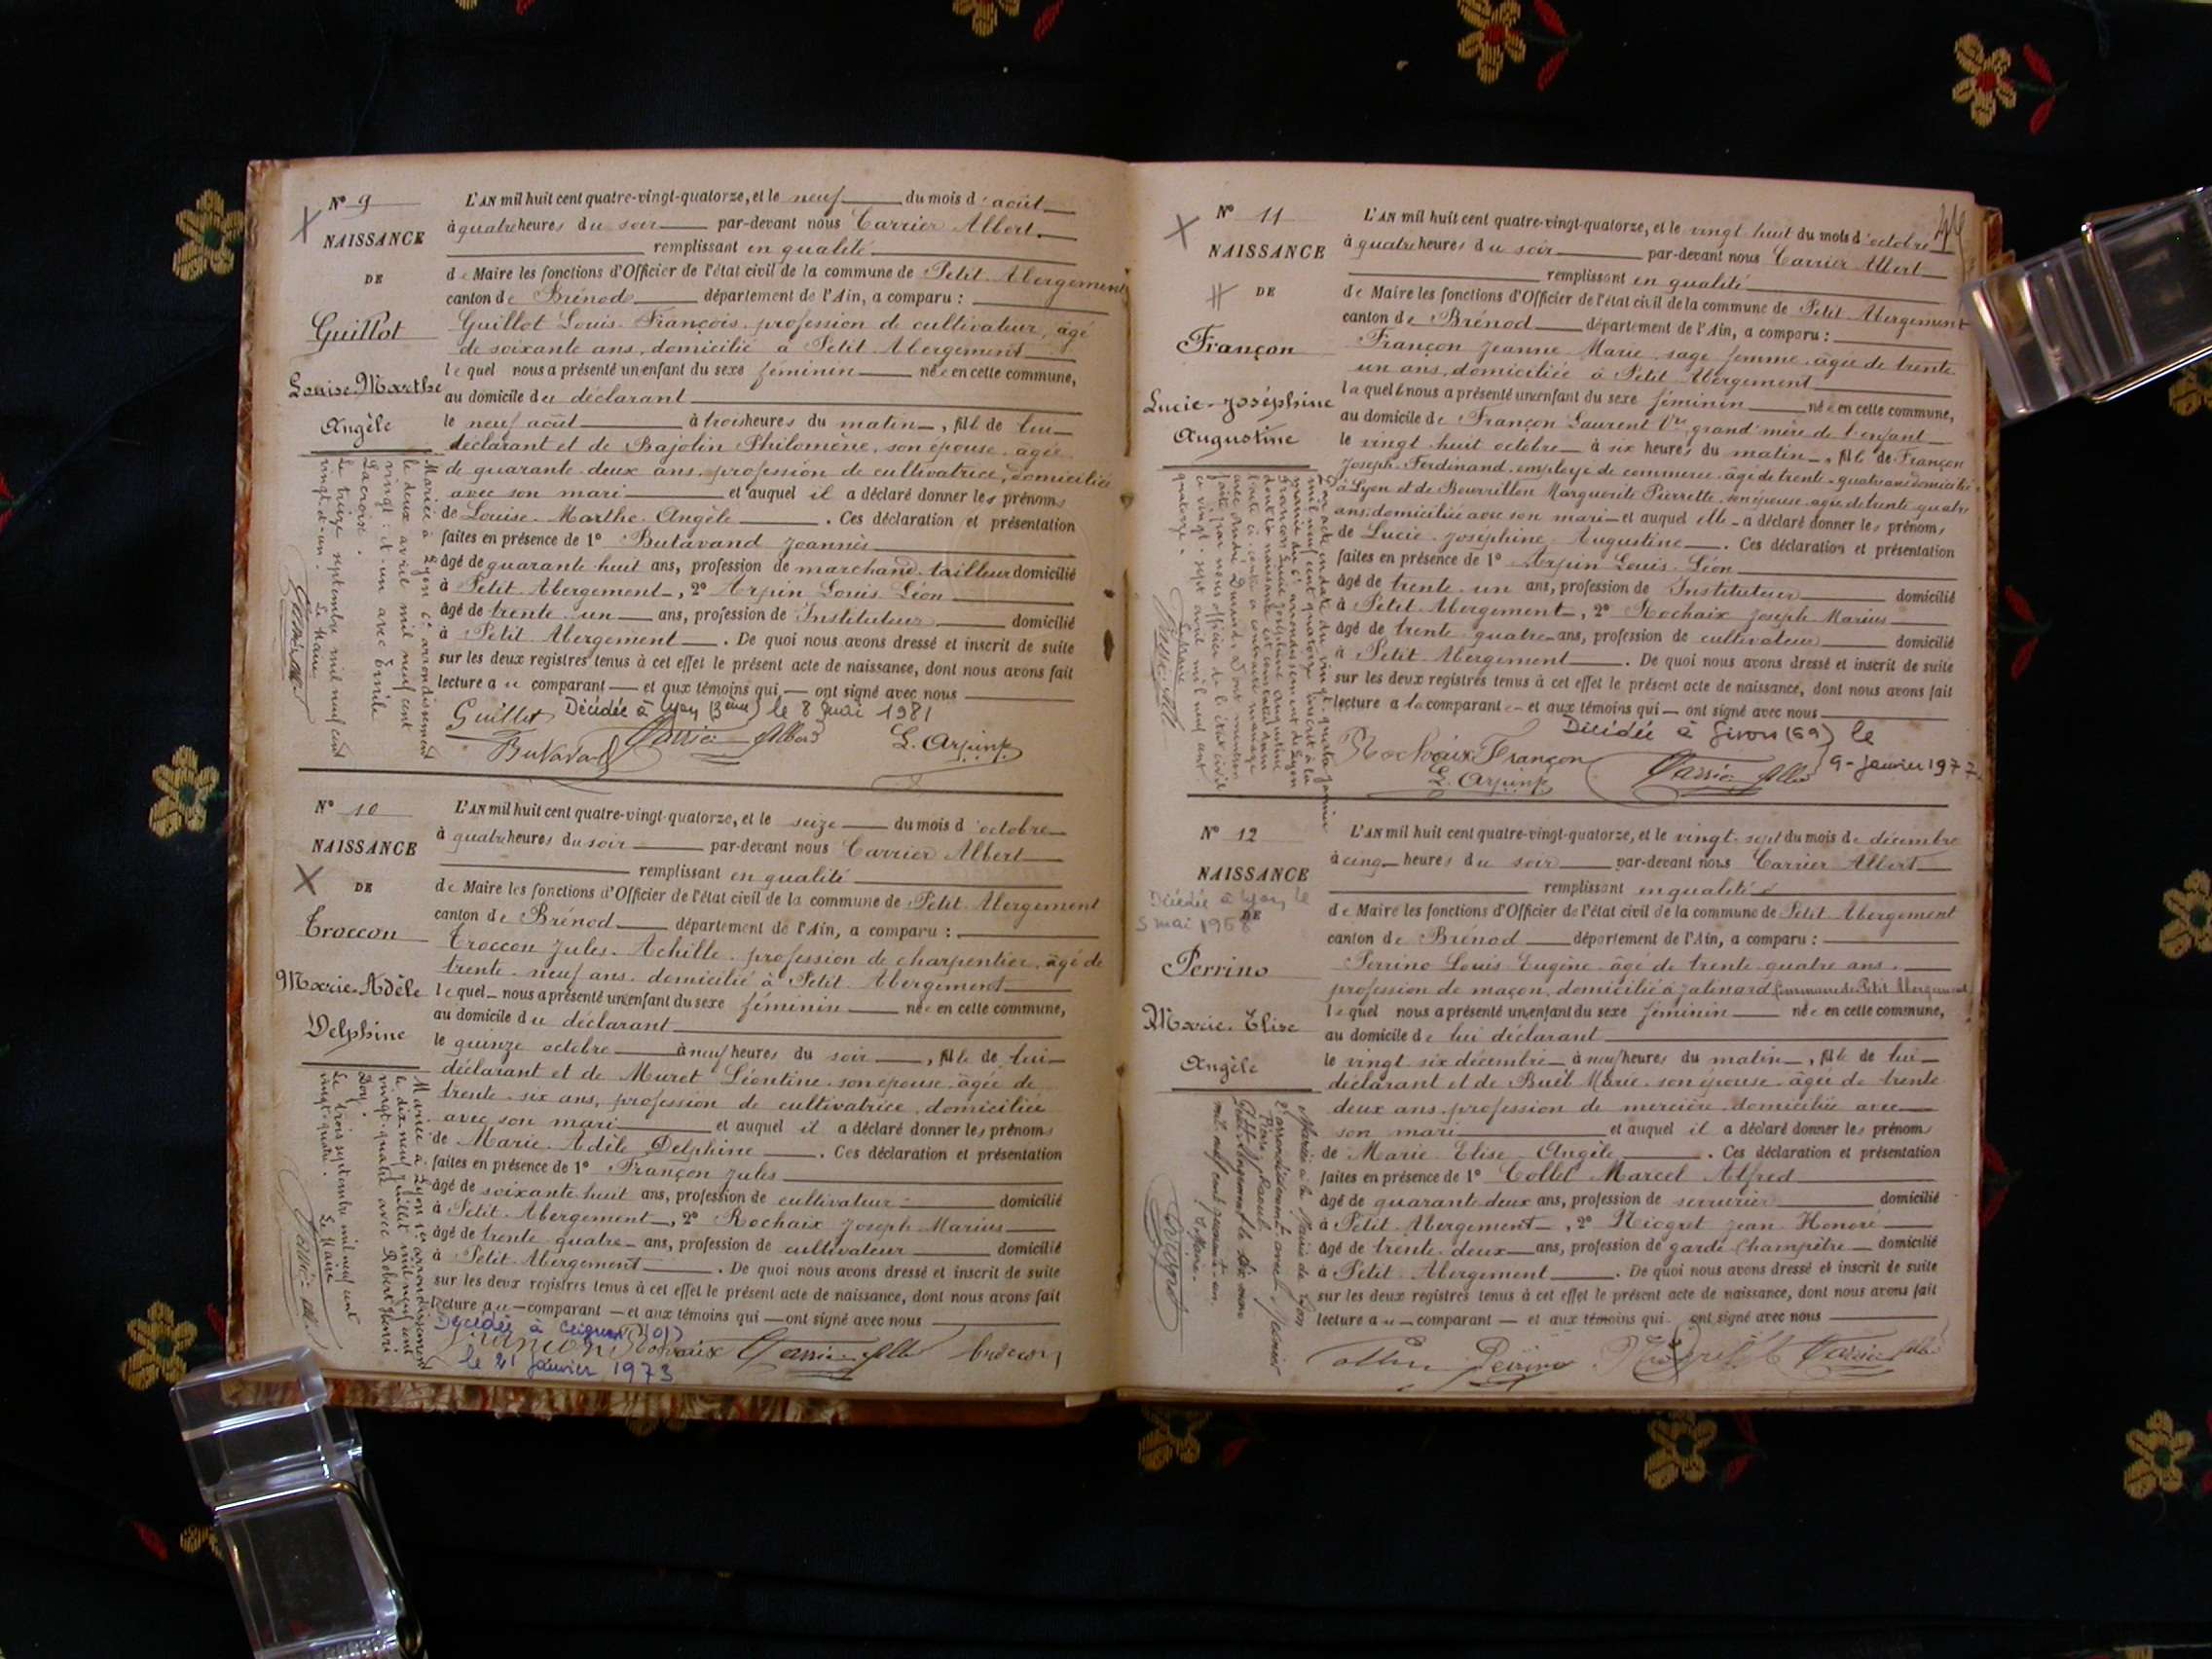 N° 9
NAISSANCE
DE
Guillot
Louise-Marthe
Angèle
L'AN mil huit cent quatre-vingt-quatorze, et le neuf du mois d'août
à quatre heures du soir par-devant nous Carrier Albert
remplissant en qualité
de Maire les fonctions d'Officier de l'état civil de la commune de Petit-Abergement
canton de Brénod département de l'Ain, a comparu :
Guillot Louis-François, profession de cultivateur, âgé
de soixante ans, domicilié à Petit-Abergement
lequel nous a présenté un enfant du sexe féminin née en cette commune,
au domicile du déclarant
le neuf août à trois heures du matin, fille de lui
déclarant et de Bajolin Philomène, son épouse, agée
de quarante-deux ans, profession de cultivatrice, domiciliée
avec son mari et auquel il a déclaré donner les prénoms
de Louise-Marthe-Angèle. Ces déclaration et présentation
faites en présence de 1° Butavand Joannès
âgé de quarante-huit ans, profession de marchand-tailleur domicilié
à Petit-Abergement, 2° Arpin Louis-Léon
âgé de trente-un ans, profession de Instituteur domicilié
à Petit-Abergement. De quoi nous avons dressé et inscrit de suite
sur les deux registres tenus à cet effet le présent acte de naissance, dont nous avons fait
lecture au comparant et aux témoins qui ont signé avec nous
Guillot Décédée à Lyon (3ème) le 8 mai 1981
Butavand Carrier Albert L. Arpin
Mariée à Lyon 6e arrondissement
le deux avril mil neuf cent
vingt-et-un avec Emile
Lacroix.
Le treize septembre mil neuf cent
vingt-et-un.
Le Maire
N° 10
NAISSANCE
DE
Troccon
Marie-Adèle
Delphine
L'AN mil huit cent quatre-vingt-quatorze, et le seize du mois d'octobre
à quatre heures du soir par-devant nous Carrier Albert
remplissant en qualité
de Maire les fonctions d'Officier de l'état civil de la commune de Petit-Abergement
canton de Brénod département de l'Ain, a comparu :
Troccon Jules-Achille, profession de charpentier, âgé de
trente-neuf ans, domicilié à Petit-Abergement
lequel nous a présenté un enfant du sexe féminin née en cette commune,
au domicile du déclarant
le quinze octobre à neuf heures du soir, fille de lui
déclarant et de Muret Léontine, son épouse, âgée de
trente-six ans, profession de cultivatrice, domiciliée
avec son mari et auquel il a déclaré donner les prénoms
de Marie-Adèle Delphine. Ces déclaration et présentation
faites en présence de 1° Françon Jules
âgé de soixante-huit ans, profession de cultivateur domicilié
à Petit-Abergement, 2° Rochaix Joseph Marius
âgé de trente-quatre ans, profession de cultivateur domicilié
à Petit-Abergement. De quoi nous avons dressé et inscrit de suite
sur les deux registres tenus à cet effet le présent acte de naissance, dont nous avons fait
lecture au comparant et aux témoins qui ont signé avec nous
Décédée à (01)
Françon Rochaix Carrier Albert troccon
le 21 janvier 1973
Mariée à Lyon arrondissement
le dix-neuf juillet mil neuf cent
vingt-quatre avec Robert Henri
Le trois septembre mil neuf cent
vingt-quatre. Le Maire
N° 11
NAISSANCE
DE
Françon
Lucie-Joséphine
Augustine
L'AN mil huit cent quatre-vingt-quatorze, et le vingt-huit du mois d'octobre
à quatre heures du soir par-devant nous Carrier Albert
remplissant en qualité
de Maire les fonctions d'Officier de l'état civil de la commune de Petit-Abergement
canton de Brénod département de l'Ain, a comparu :
Françon Jeanne-Marie, sage-femme, âgée de trente
un ans, domiciliée à Petit-Abergement
laquelle nous a présenté un enfant du sexe féminin née en cette commune,
au domicile de Françon Laurent Vve, grand'mère de l'enfant
le vingt-huit octobre à six heures du matin, fille de Françon
Joseph-Ferdinand, employé de commerce, âgé de trente-quatre ans domicilié
à Lyon et de Bouvrillon Marguerite Pierrette, son épouse, agée de trente-quatre
ans, domiciliée avec son mari et auquel elle a déclaré donner les prénoms
de Lucie-Joséphine-Augustine. Ces déclaration et présentation
faites en présence de 1° Arpin Louis-Léon
âgé de trente-un ans, profession de Instituteur domicilié
à Petit-Abergement, 2° Rochaix Joseph Marius
âgé de trente-quatre ans, profession de cultivateur domicilié
à Petit-Abergement. De quoi nous avons dressé et inscrit de suite
sur les deux registres tenus à cet effet le présent acte de naissance, dont nous avons fait
lecture a la comparante et aux témoins qui ont signé avec nous
Décédée à Givors (69) le
9 janvier 197
Rochaix Françon
L. Arpin Carrier Albert
Par acte en date du vingt-quatre janvier
mil neuf cent quatorze inscrit à la
mairie du 6e arrondissement de Lyon
Françon Lucie Joséphine Augustine
dont la naissance est constatée dans
l'acte ci-contre a contracté mariage
avec André Durand. Dont mention
faite par nous officier de l'état civil
ce vingt-sept avril mil neuf cent
quatorze.
N° 12
NAISSANCE
DE
Décédée à Lyon le
5 mai 1958
Perrino
Marie-Elise
Angèle
L'AN mil huit cent quatre-vingt-quatorze, et le vingt-sept du mois de décembre
à cinq heures du soir par-devant nous Carrier Albert
remplissant en qualité
de Maire les fonctions d'Officier de l'état civil de la commune de Petit-Abergement
canton de Brénod département de l'Ain, a comparu :
Perrino Louis-Eugène, âgé de trente-quatre ans,
profession de maçon, domicilié à Jalinard (commune de Petit-Abergement)
lequel nous a présenté un enfant du sexe féminin née en cette commune,
au domicile de lui déclarant
le vingt-six décembre à neuf heures du matin, fille de lui
déclarant et de Buël Marie, son épouse, âgée de trente
deux ans, profession de mercière, domiciliée avec
son mari et auquel il a déclaré donner les prénoms
de Marie-Elise-Angèle. Ces déclaration et présentation
faites en présence de 1° Collet Marcel Alfred
âgé de quarante-deux ans, profession de serrurier domicilié
à Petit-Abergement, 2° Niogret Jean-Honoré
âgé de trente-deux ans, profession de garde-champêtre domicilié
à Petit-Abergement. De quoi nous avons dressé et inscrit de suite
sur les deux registres tenus à cet effet le présent acte de naissance, dont nous avons fait
lecture au comparant et aux témoins qui ont signé avec nous
Collet Perrino Niogret Carrier Albert
Mariée à la Mairie de Lyon
2e arrondissement avec
Pierre Raoul.
Petit Abergement le dix
mil neuf cent
Le Maire.